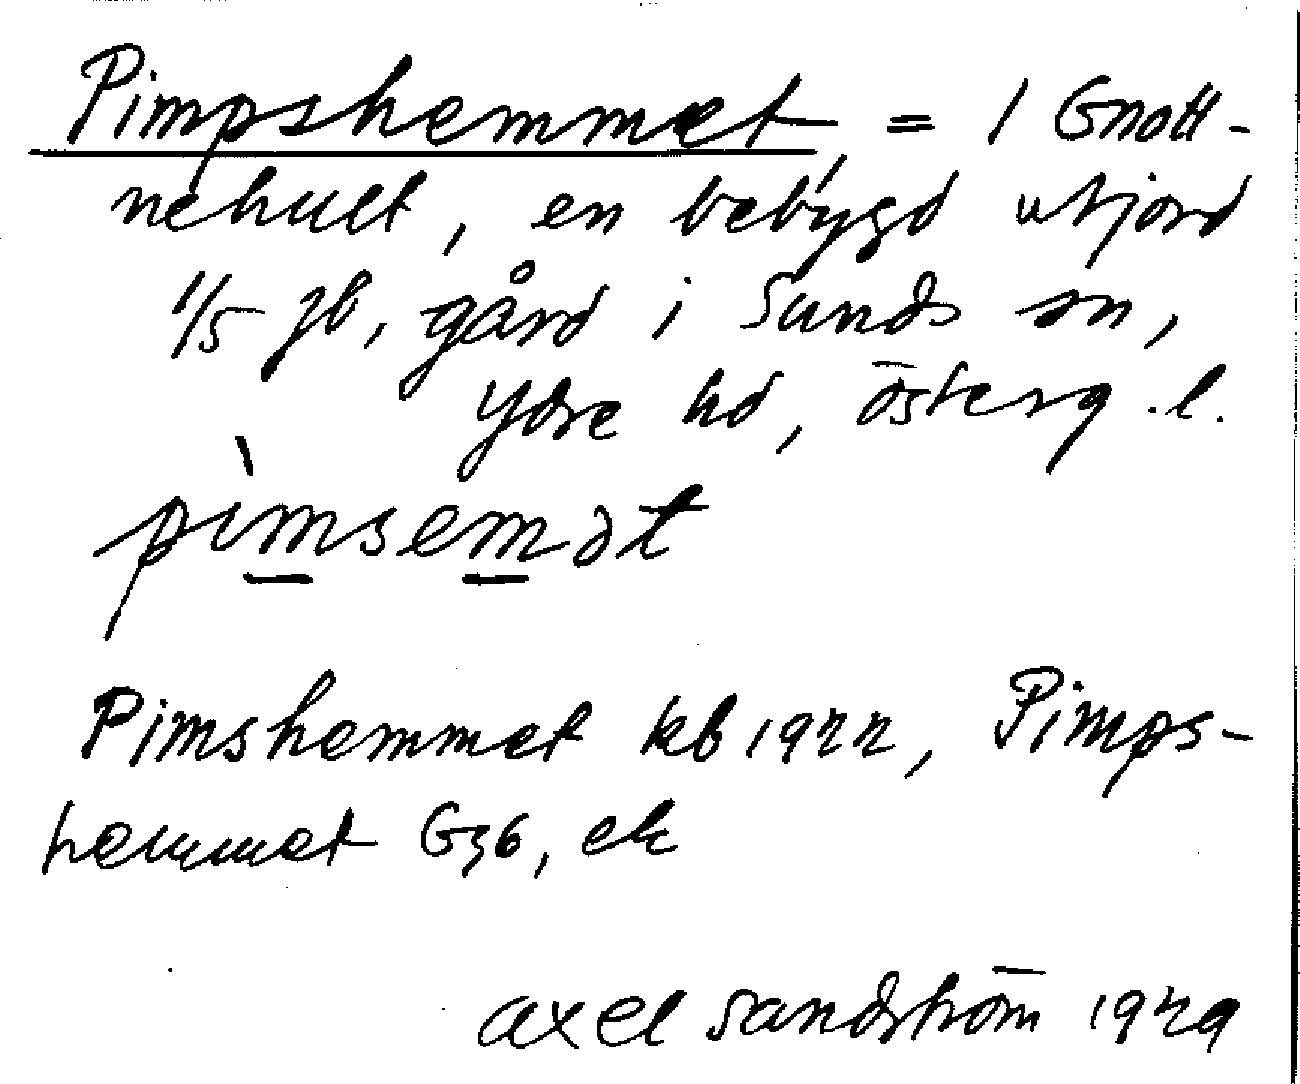 Pimpshemmet, = 1 Gnott-
nehult, en bebygd utjord
1/5 jb, gård i Sunds sn,
Ydre hd, Österg. l.
pìmsemət
Pimshemmet kb 1922, Pimps-
hemmet G36, ek
Axel Sandström 1929